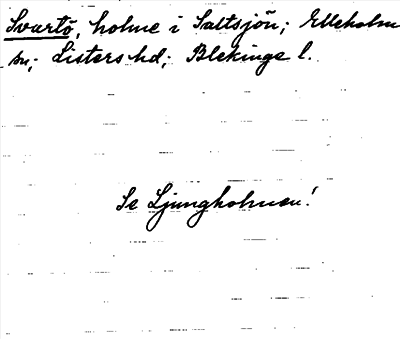 Svartö, holme i Saltsjön; Elleholm
sn; Listers hd; Blekinge l.
Se Ljungholmen!